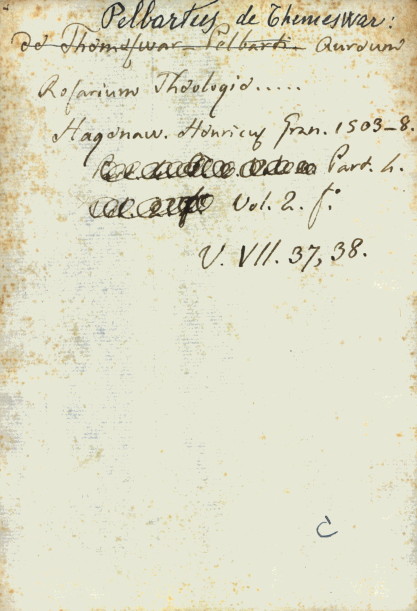 Pelbartus de Themeswar:
de Themeswar Pelbarti. Aureum
Rosarium Theologie.....
Hagenaw. Henricus Gran. 1503-8.
Part. 4.
Vol. 2. f:
V. VII. 37, 38.
C